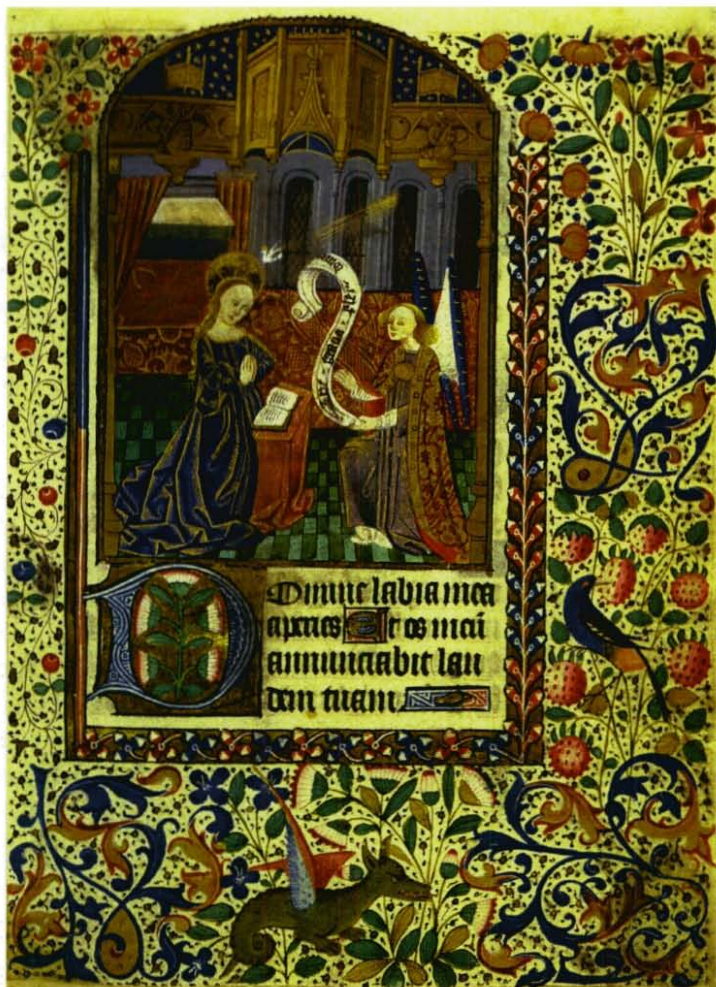 Domine labia mea
aperies Et os meū
annunciabit lau
dem tuam